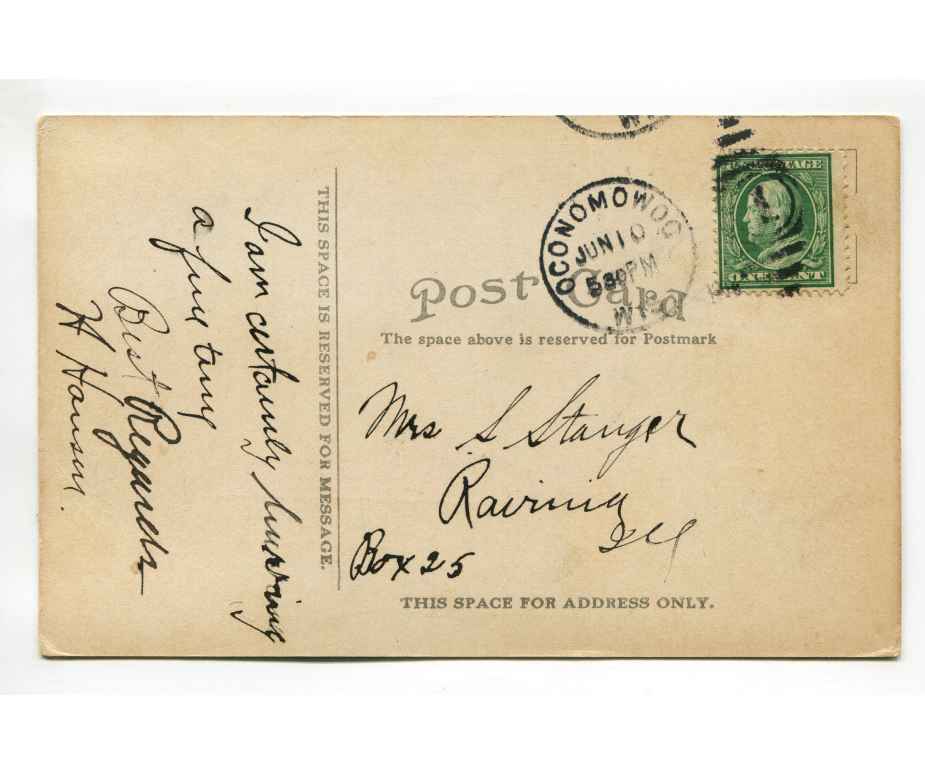 I am certainly having
a fine time
Best Regards
H Hansen.
THIS SPACE IS RESERVED FOR MESSAGE.
WIS
OCONOMOWOC
JUN 10
530PM
WIS.
U.S. POSTAGE
1
ONE CENT
Post Card
The space above is reserved for Postmark
Mrs S Stanger
Ravinia
Ill
Box 25
THIS SPACE FOR ADDRESS ONLY.